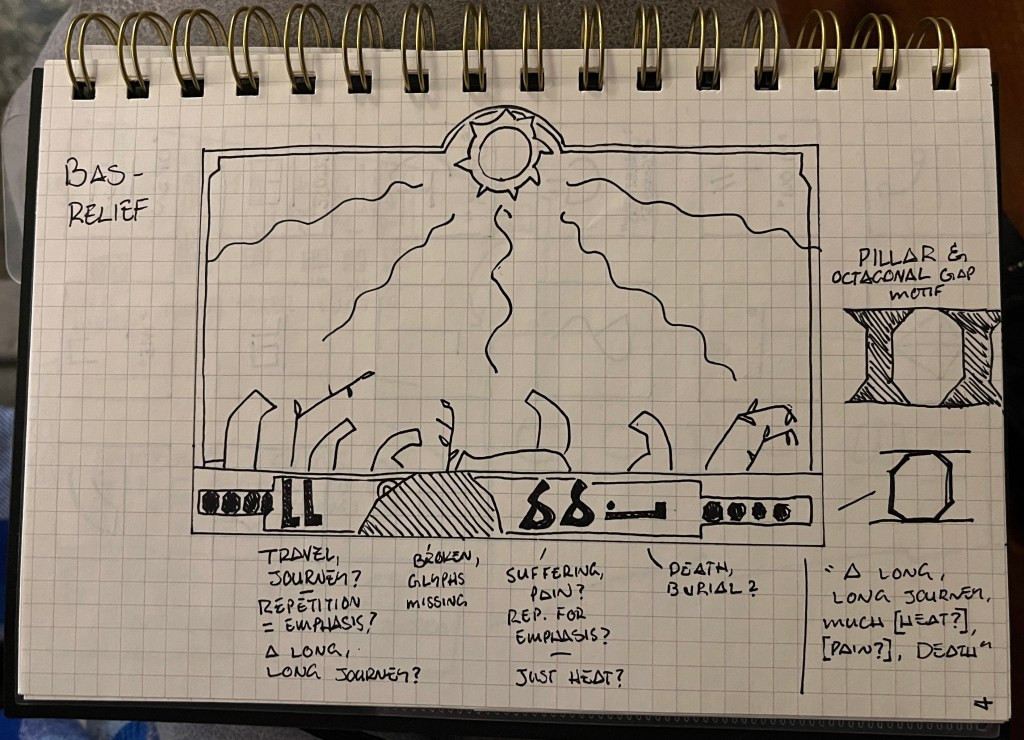 BAS-
RELIEF
PILLAR &
OCTAGONAL GAP
MOTIF
TRAVEL,
JOURNEY?
REPETITION
= EMPHASIS?
A LONG,
LONG JOURNEY?
BROKEN,
GLYPHS
MISSING
SUFFERING,
PAIN?
REP. FOR
EMPHASIS?
JUST HEAT?
DEATH,
BURIAL?
"A LONG,
LONG JOURNEY,
MUCH [HEAT?],
[PAIN?], DEATH"
4